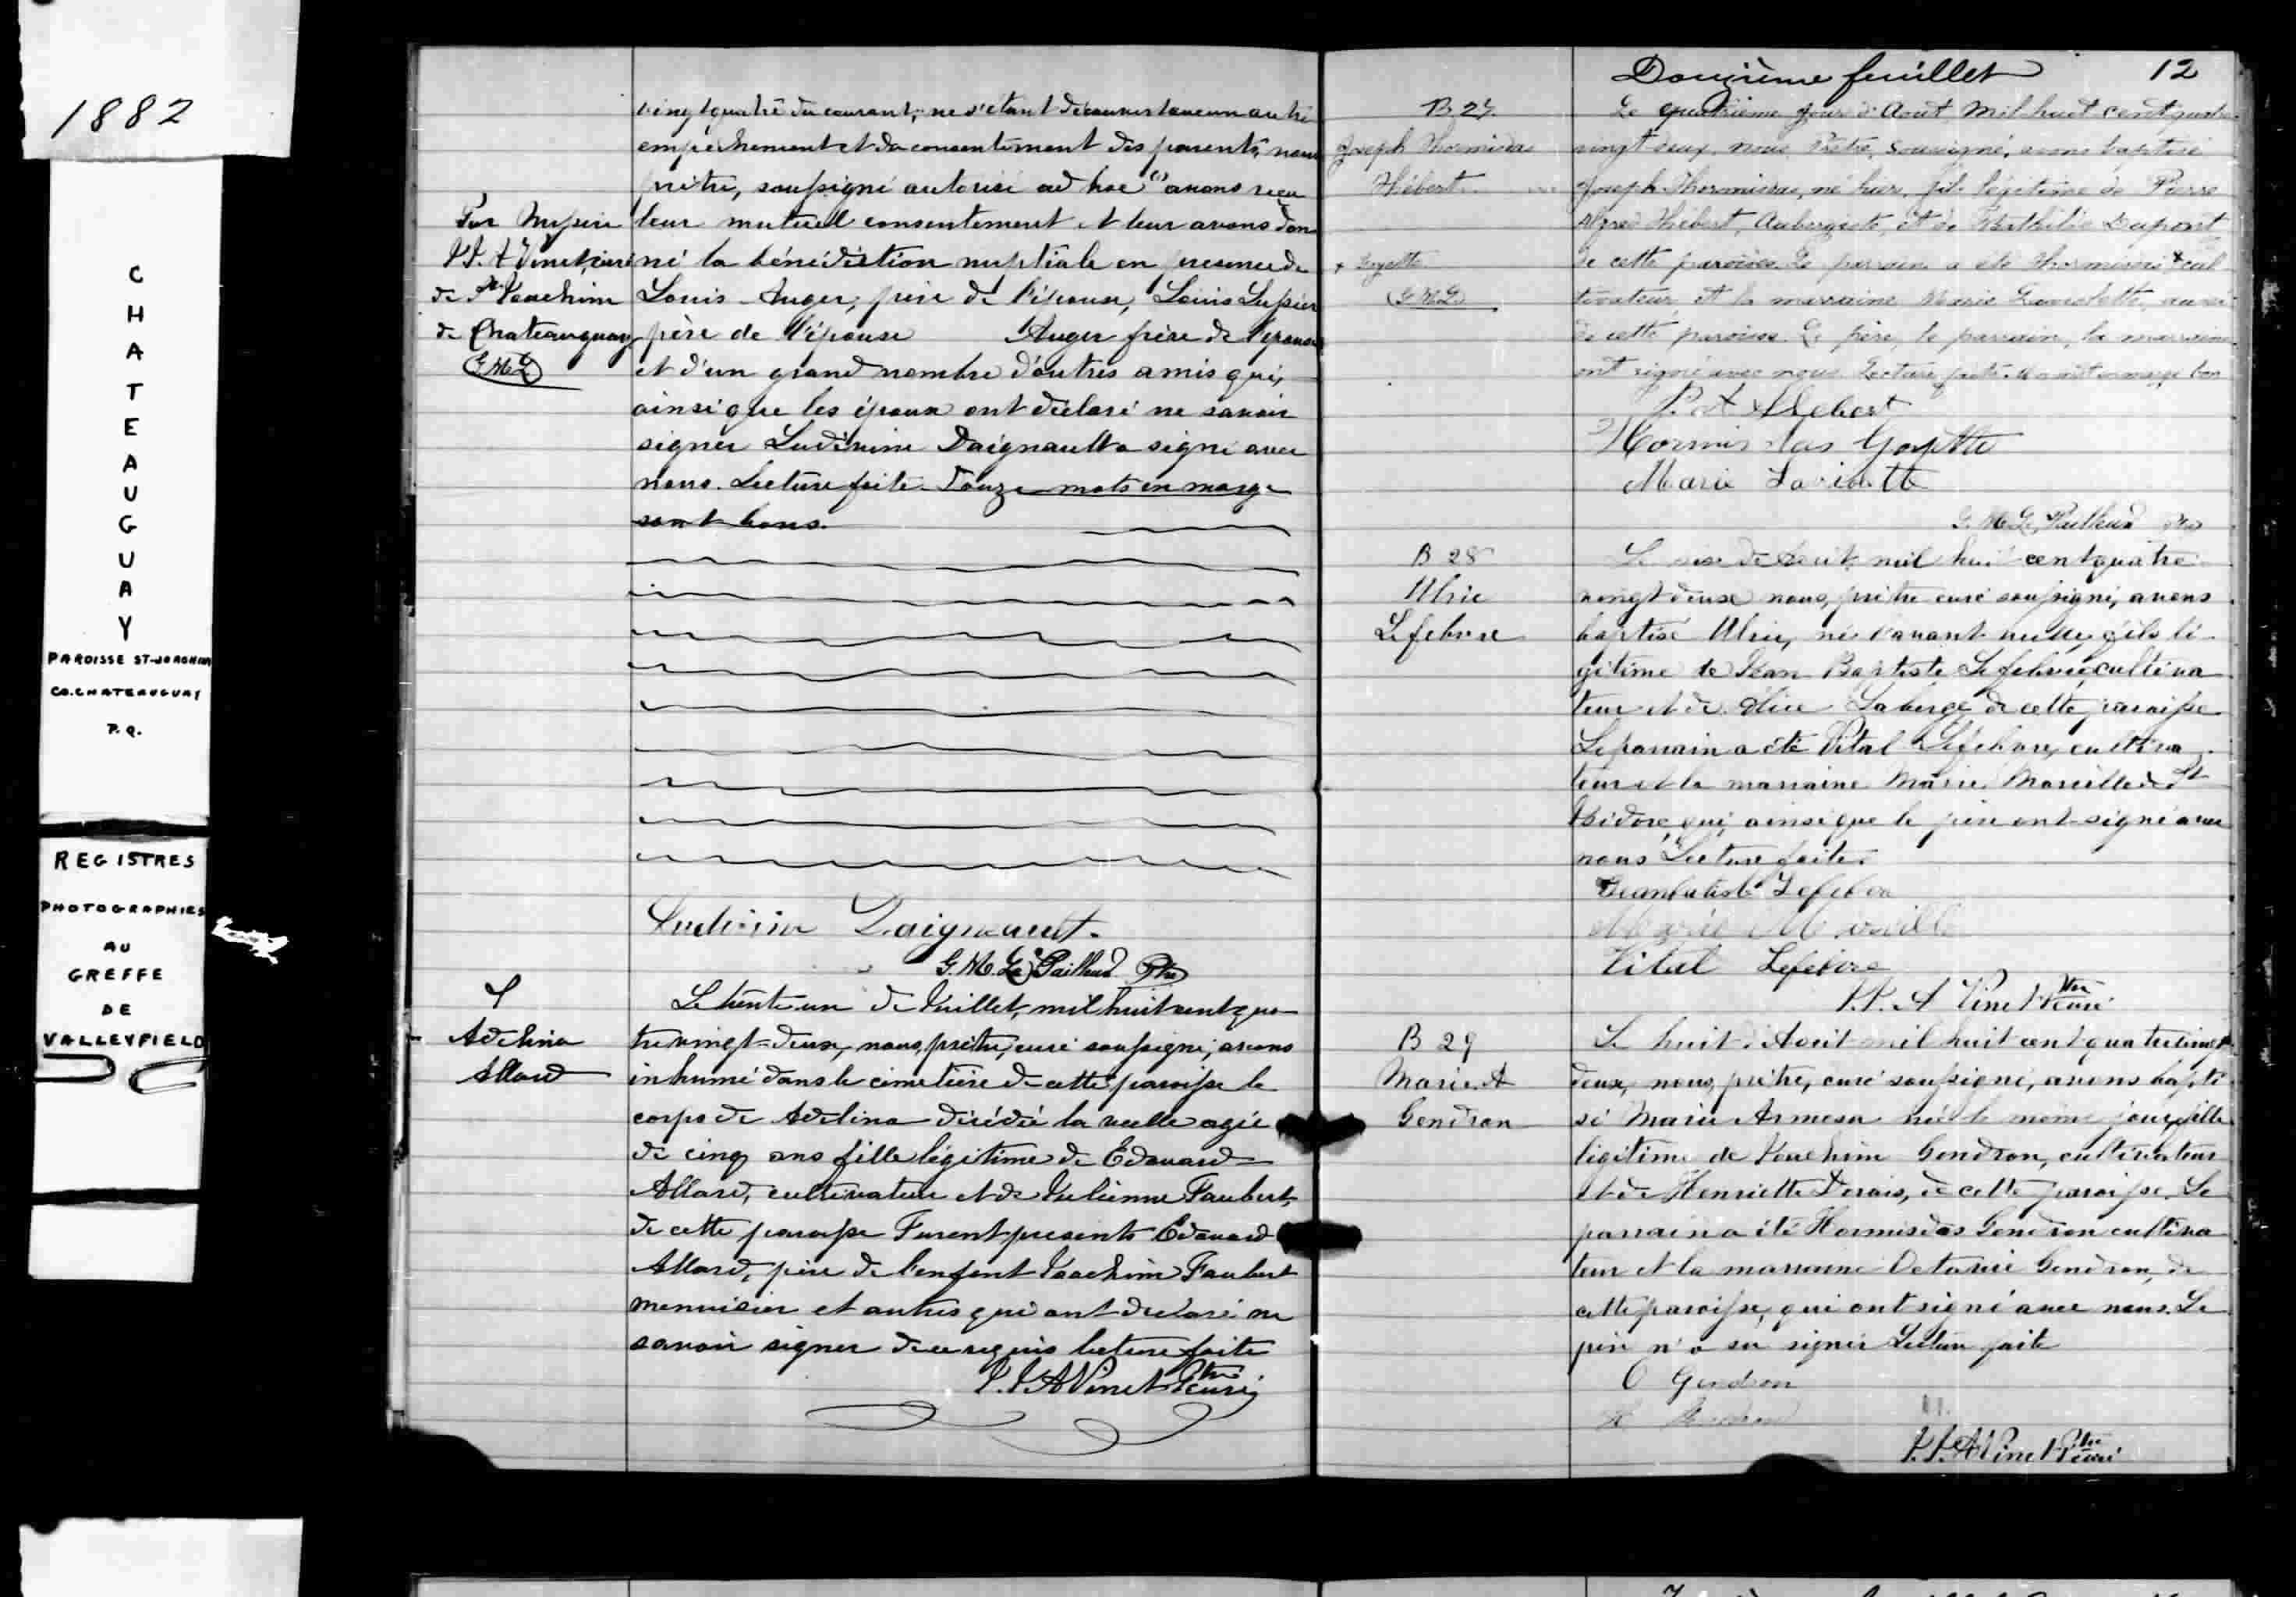 1882
CHATEAUGUAY
PAROISSE ST-JOACHIM
CO. CHATEAUGUAY
P.Q.
REGISTRES
PHOTOGRAPHIES
AU
GREFFE
DE
VALLEYFIELD
vingt quatre du courant, ne s'étant découvert aucun autre
empêchement et du consentement des parents, nous
prêtre, soussigné autorisé ad hoc avons reçu
leur mutuel consentement et leur avons don
né la bénédiction nuptiale en présence de
Louis Auger, père de l'époux, Louis
père de l'épouse Auger frère de l'époux
et d'un grand nombre d'autres amis qui,
ainsi que les époux ont déclaré ne savoir
signer Daignault a signé avec
nous. Lecture faite. Douze mots en marge
sont bons.
Par
de St Joachim
de Chateauguay
G.M.L
Daignault.
G. M. Le Pailleur Ptre
S
Adelina
Allard
Le trente un de Juillet, mil huit cent qua
tre vingt-deux, nous, prêtre, curé soussigné, avons
inhumé dans le cimetière de cette paroisse le
corps de Adelina décédée la veille agée
de cinq ans fille légitime de Edouard
Allard, cultivateur et de Julienne Faubert,
de cette paroisse Furent présents Edouard
Allard, père de l'enfant Joachim Faubert
menuisier et autres qui ont déclaré ne
savoir signer de ce requis lecture faite
P. P. A Vinet Ptre Curé
Douzième feuillet 12
B 27.
Joseph Thormisdas
Hébert
+ Goyette
G.M.L
Le quatrième jour d'Aout Mil huit cent quatre
vingt deux, nous Prêtre, soussigné, avons baptisé
Joseph Thormisdas, né hier, fils légitime de Pierre
Alfred Hébert, Aubergiste, et de Dupont
de cette paroisse. Le parrain a été Thormisdas + cul
tivateur, et la marraine Marie Laviolette, aussi
de cette paroisse. Le père, le parrain, la marraine
ont signé avec nous. Lecture faite. Un mot en marge bon
P. A Hebert
Hormisdas Goyette
Marie Laviolette
G. M. Le Pailleur Ptre
B 28
Ulric
Lefebvre
Le six de Aout, mil huit cent quatre
vingt deux nous, prêtre curé soussigné, avons
baptisé Ulric, né l'avant veille, fils lé
gitime de Jean Baptiste Lefebvre, cultiva
teur et de Alice Laberge de cette paroisse
Le parrain a été Vital Lefebvre, cultiva
teur et la marraine Marie de St
Isidore, qui, ainsi que le père ont signé avec
nous Lecture faite.
Jeanbatiste Lefebvre
Marie
Vital Lefebvre
P. P. A Vinet Ptre Curé
B 29
Marie A
Gendron
Le huit d'Aout mil huit cent quatre vingt
deux, nous, prêtre, curé soussigné, avons bapti
sé Marie née le même jour, fille
légitime de Joachim Gendron, cultivateur
et de Henriette de cette paroisse. Le
parrain a été Hormisdas Gendron cultiva
teur et la marraine Octavie Gendron, de
cette paroisse, qui ont signé avec nous. Le
père n'a su signer Lecture faite
O Gendron
H Gendron
P. P. A Vinet Ptre Curé